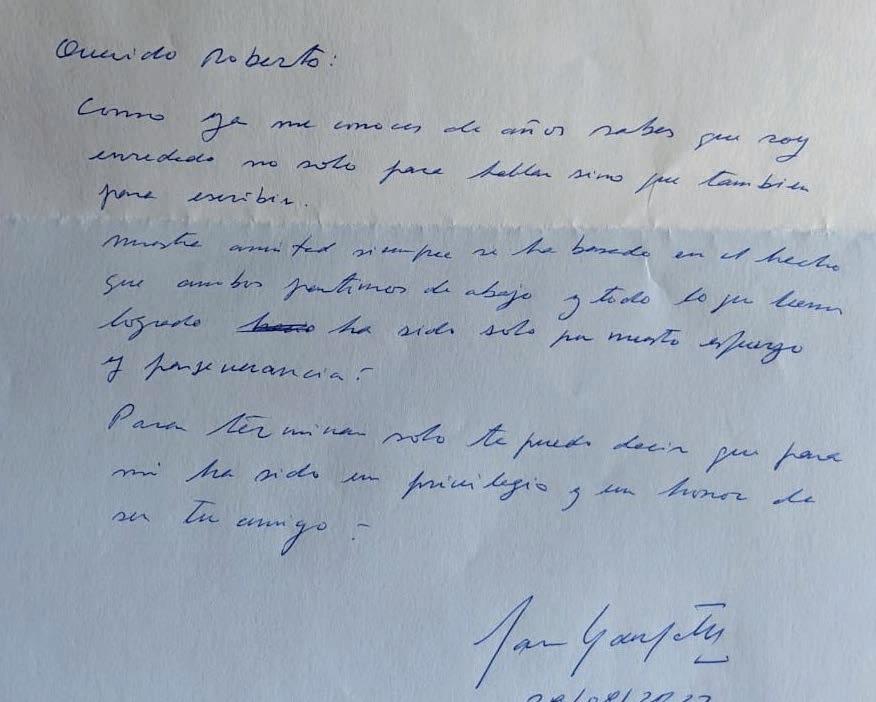 Querido Roberto:
Como ya me conoces de años sabes que soy
enredado no solo para hablar sino que tambien
para escribir.
nuestra amistad siempre se ha basado en el hecho
que ambos partimos de abajo y todo lo que hemos
logrado ha sido solo por nuestro esfuerzo
y perseverancia.-
Para terminar solo te puedo decir que para
mi ha sido un privilegio y un honor de
ser tu amigo.-